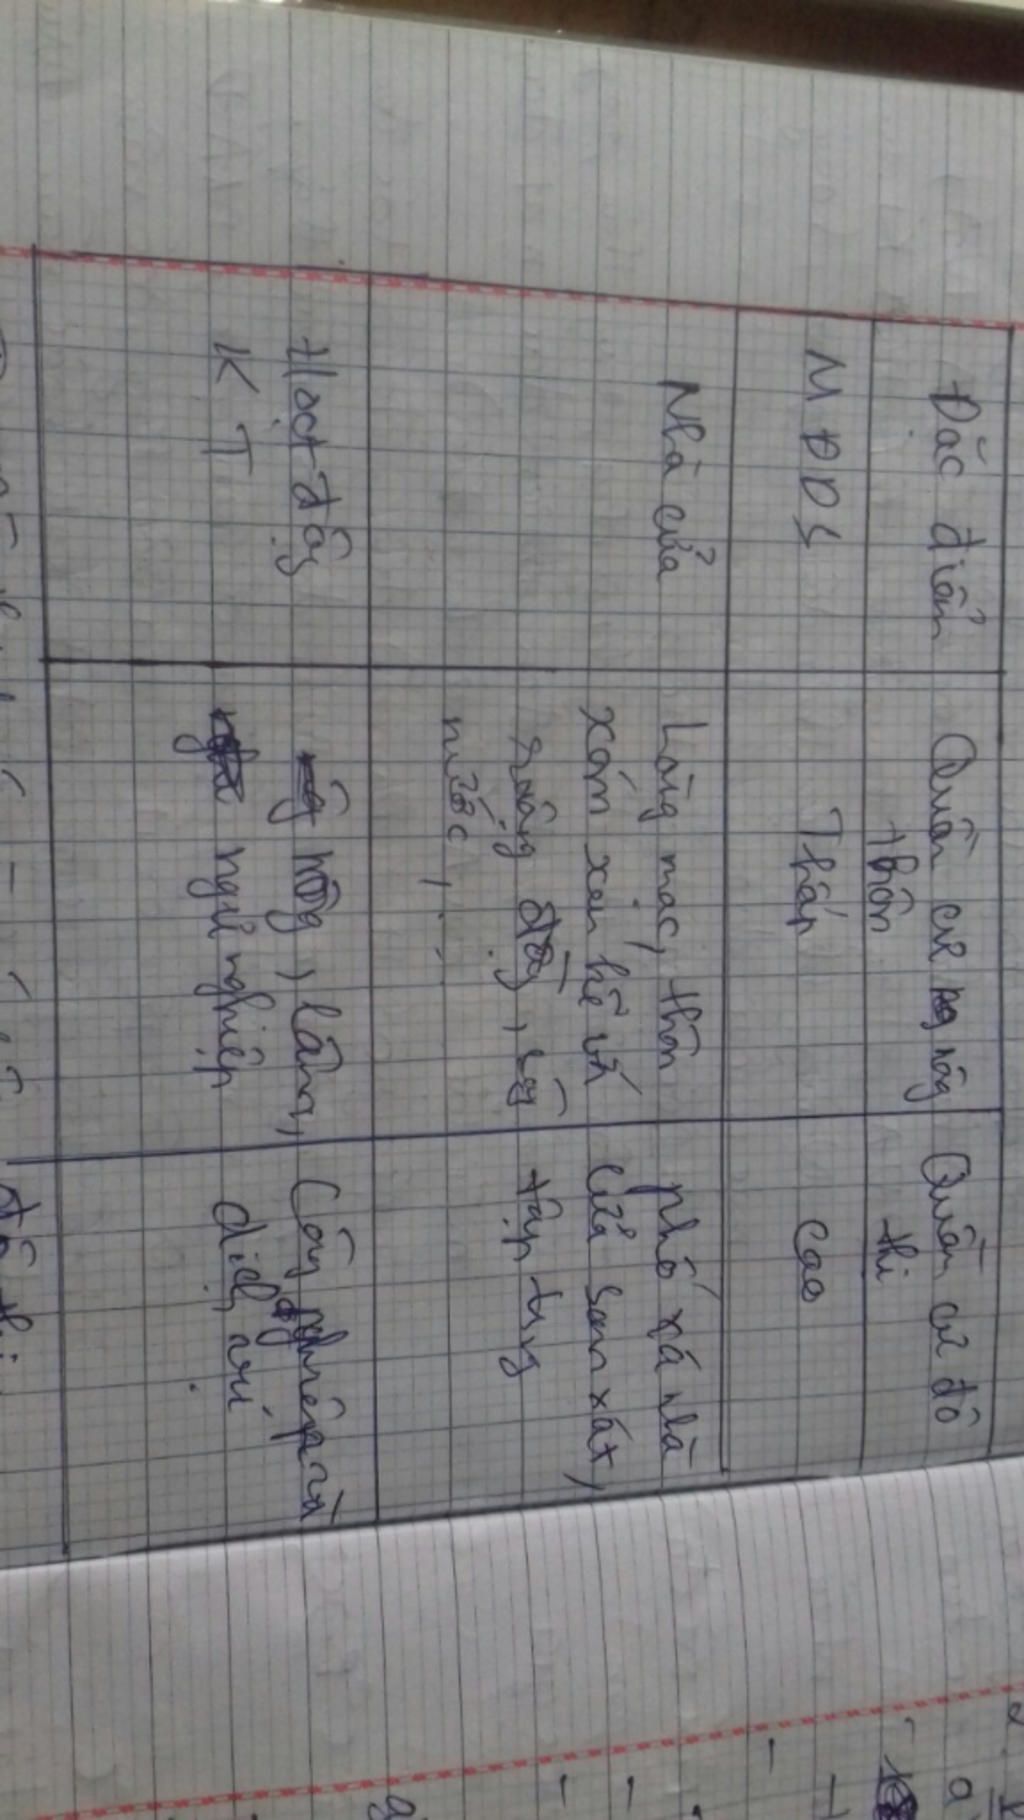 Đặc điểm
Quần cư nông
thôn
Quần cư đô
thị
MĐDS
Thấp
Cao
Nhà cửa
Làng mạc, thôn
xóm xen kẽ với
ruộng đồng, sông
nước,...
phố xá nhà
cửa san xát,
tập trung
Hoạt động
KT
nông, lâm,
ngư nghiệp
Công nghiệp và
dịch vụ.